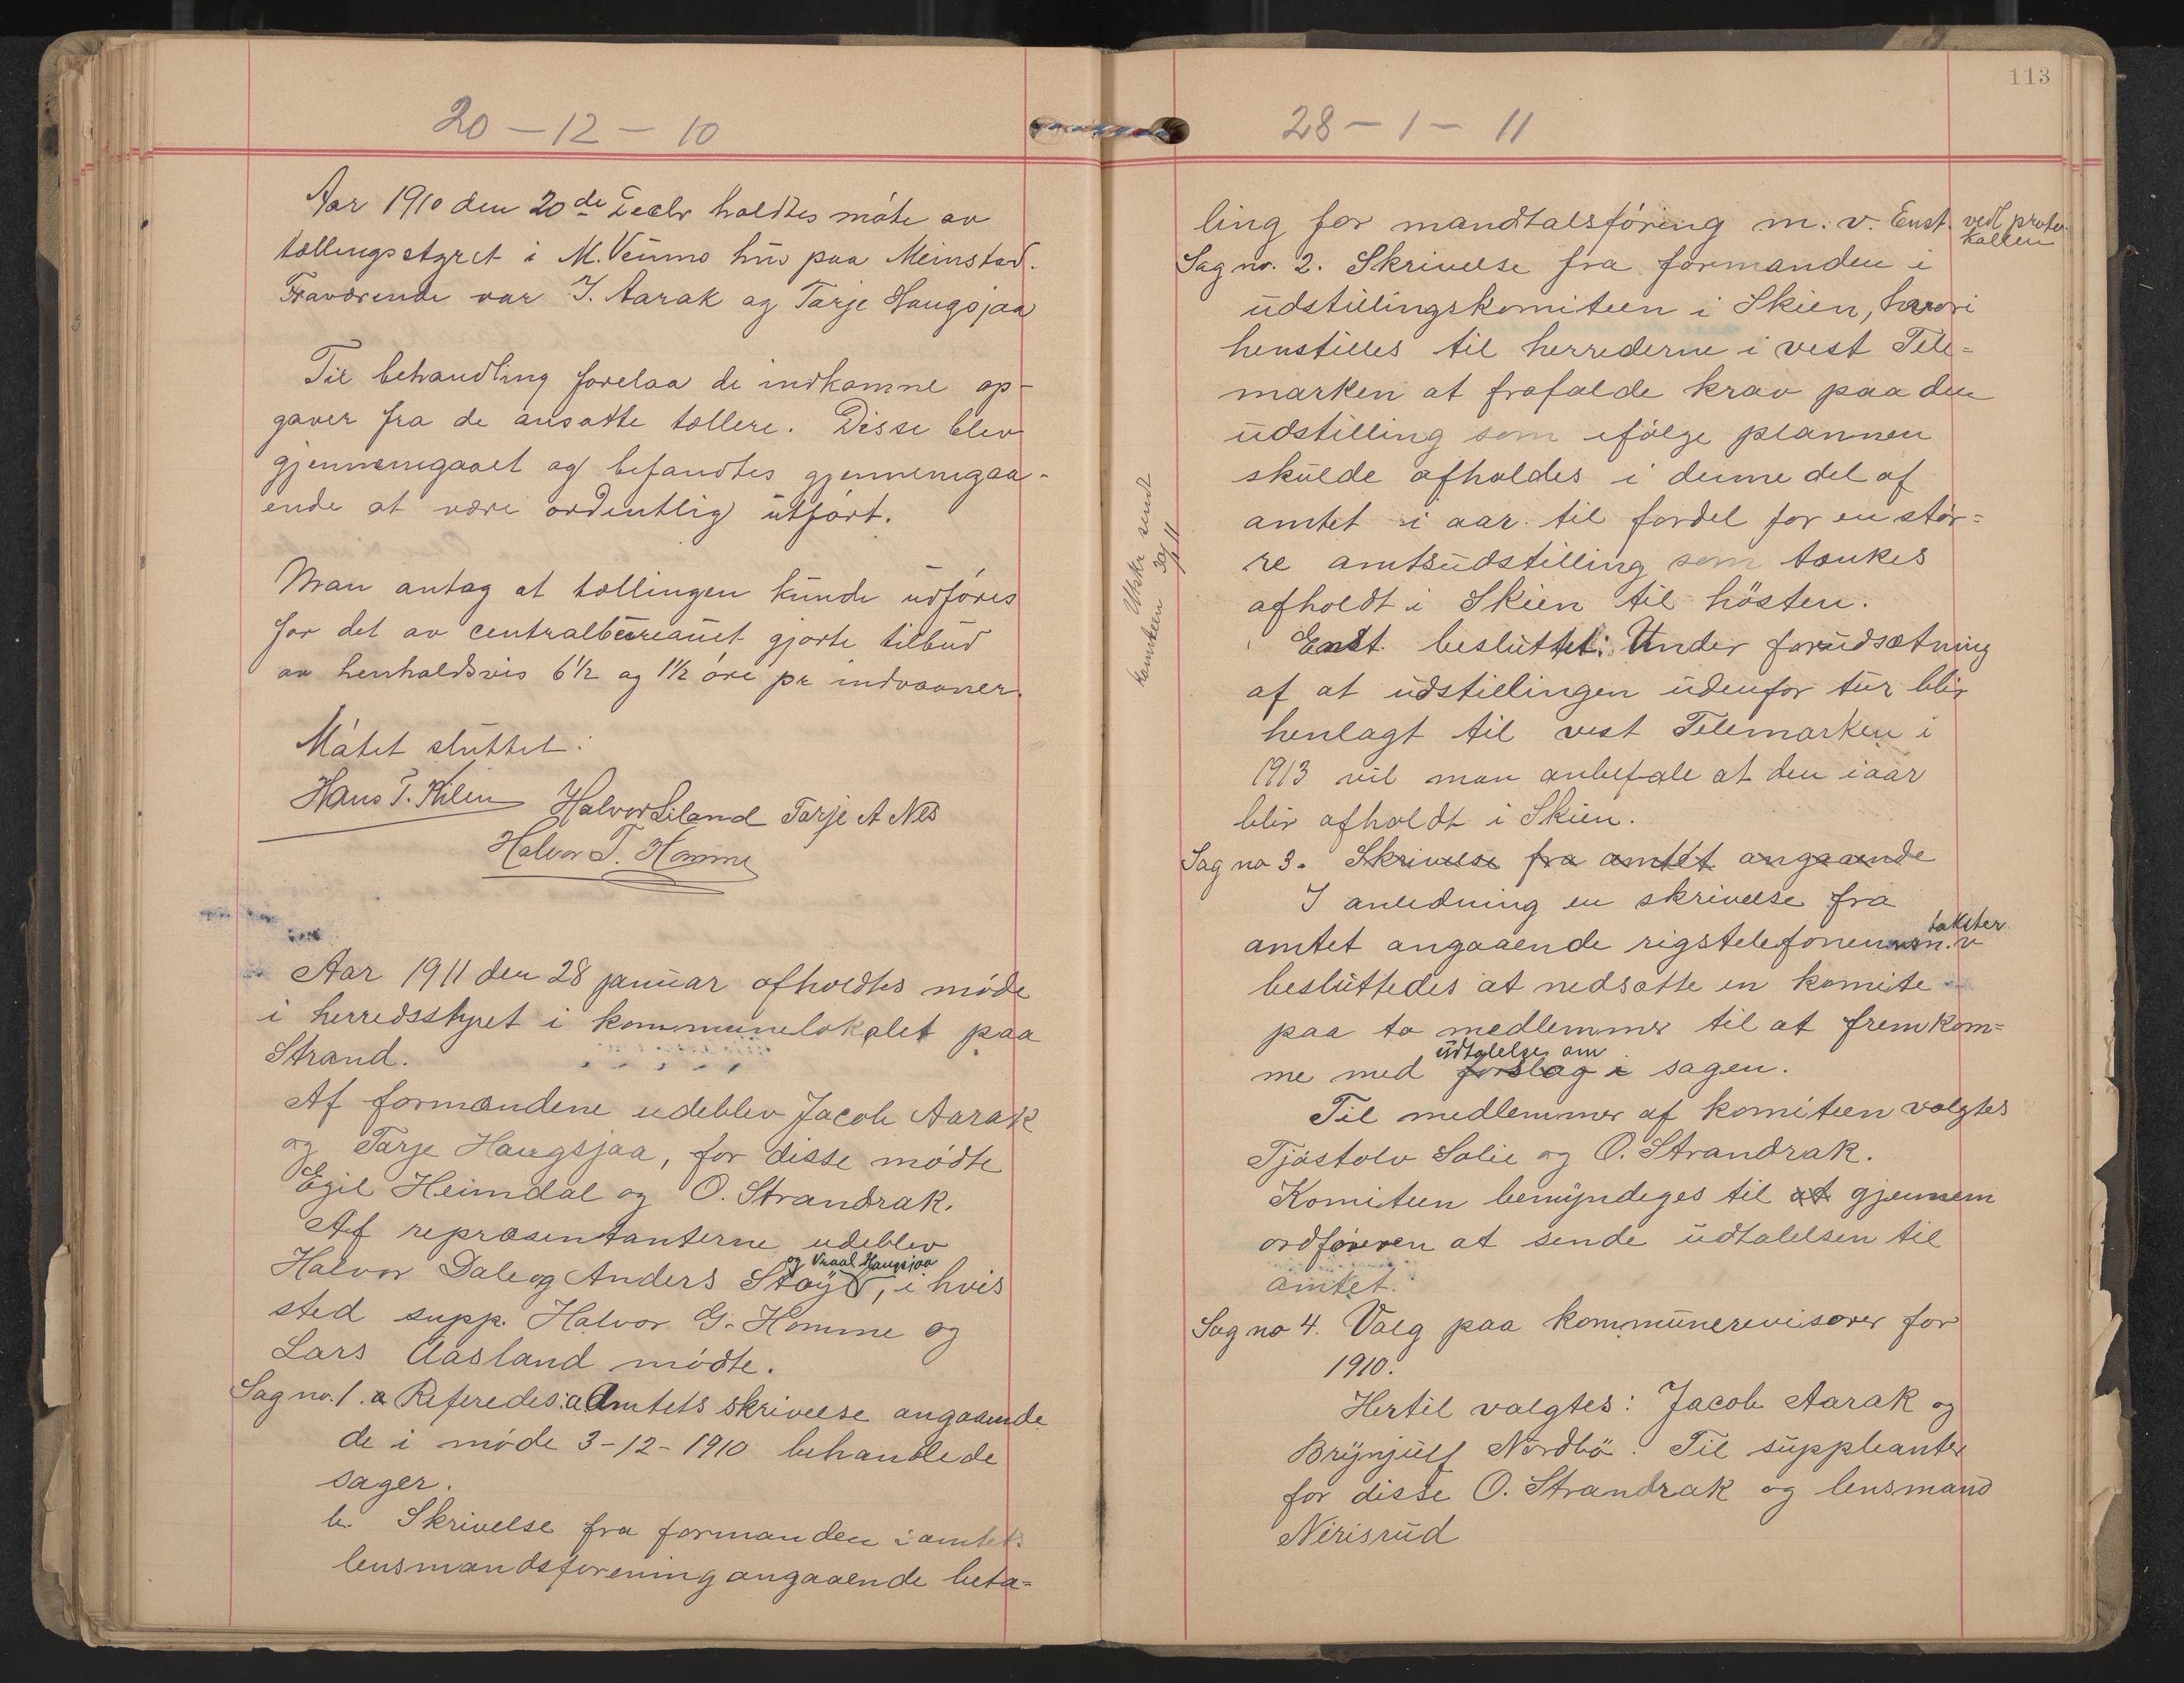 20 - 12 - 10
Aar 1910 den 20de Decbr holdtes møte av
tællingsstyret i M. Veums hus paa Meinstad.
Fraværende var J. Aarak og Tarje Haugsjaa
Til behandling forelaa de indkomne op-
gaver fra de ansatte tællere. Disse blev
gjennemgaaet og befandtes gjennemgaa-
ende at være ordentlig utført.
Man antog at tællingen kunde udføres
for det av centralbureauet gjorte tilbud
av henholdsvis 6½ og 1½ øre pr indvaaner.
Møtet sluttet:
Hans T. Kilen Halvor Liland Tarje A Nes
Halvor T. Homme
Aar 1911 den 28 januar afholdtes møde
i herredsstyret i kommunelokalet paa
Strand.
Af formændene udeblev Jacob Aarak
og Tarje Haugsjaa, for disse mødte
Egil Heimdal og O. Strandrak.
Af repræsentanterne udeblev
og Vraal Haugsjaa
Halvor Dale og Anders Støyl, i hvis
sted supp. Halvor G. Homme og
Lars Aasland mødte.
Sag no. 1. a Referedes: a Amtets skrivelse angaaende
de i møde 3-12-1910 behandlede
sager.
b. Skrivelse fra formanden i amtets
lensmandsforening angaaende beta=
113
28 - 1 - 11
ling for mandtalsføring m. v. Enst. vedl. proto-
kollen
Sag no. 2. Skrivelse fra formanden i
udstillingskomiteen i Skien, hvori
henstilles til herrederne i vest Tele=
marken at frafalde krav paa den
udstilling som ifølge plannen
skulde afholdes i denne del af
amtet i aar til fordel for en stør=
re amtsudstilling som tænkes
afholdt i Skien til høsten.
Utskr sendt
komiteen 30/1 11
Enst. besluttet: Under forudsætning
af at udstillingen udenfor tur blir
henlagt til vest Telemarken i
1913 vil man anbefale at den iaar
blir afholdt i Skien.
Sag no 3. Skrivelse fra amtet angaaende
I anledning en skrivelse fra
takster
amtet angaaende rigstelefonen m. v
besluttedes at nedsætte en komite
paa to medlemmer til at fremkom=
udtalelse om
me med forslag i sagen.
Til medlemmer af komiteen valgtes
Tjøstolv Solie og O. Strandrak.
Komiteen bemyndiges til at gjennem
ordføreren at sende udtalelsen til
amtet.
Sag no 4. Valg paa kommunerevisorer for
1910.
Hertil valgtes: Jacob Aarak og
Brynjulf Nordbø. Til suppleanter
for disse O. Strandrak og lensmand
Nirisrud